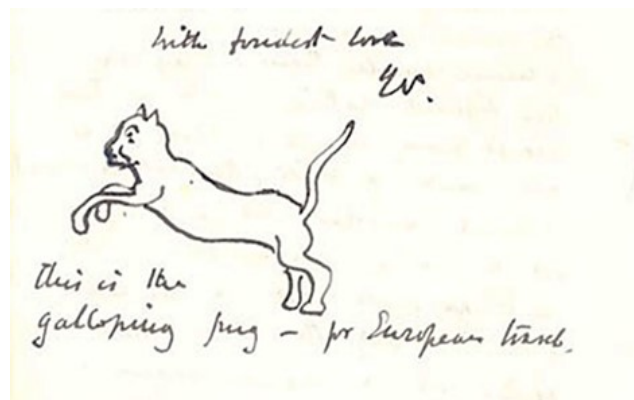 with fondest love
W.
This is the
galloping pug – for European travel.